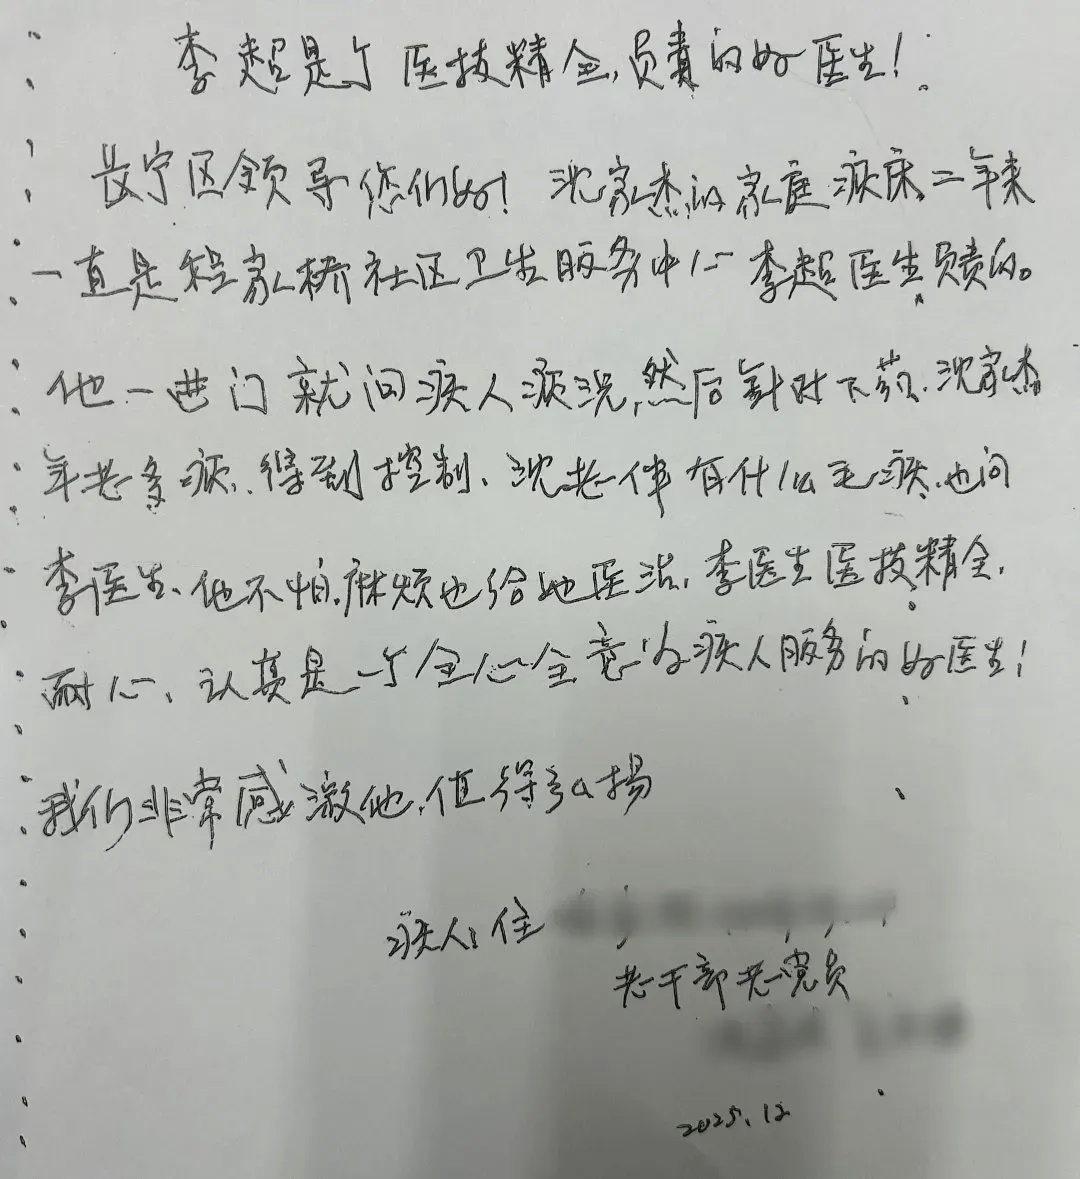 李超是个医技精全,负责的好医生!
长宁区领导您们好!沈家杰的家庭病床二年来
一直是程家桥社区卫生服务中心李超医生负责的。
他一进门就问病人病况,然后针对下药、沈家杰
年老多病、得到控制、沈老伴有什么毛病、也问
李医生、他不怕麻烦也给她医治,李医生医技精全、
耐心、认真是一个全心全意为病人服务的好医生!
我们非常感激他,值得弘扬
病人:住
老干部老党员
2025.12